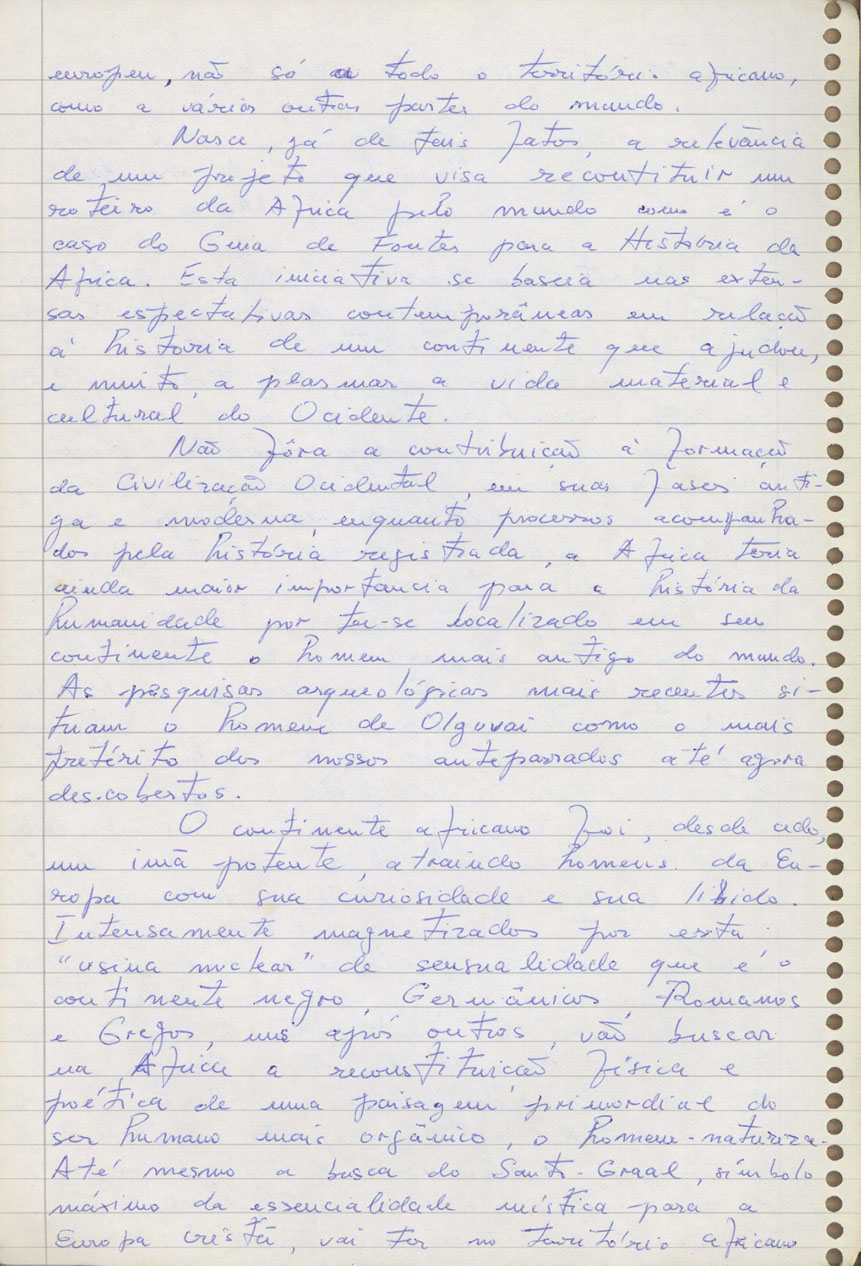 europeu, não só a todo o território africano,
como a vários outras partes do mundo.
Nasce, já de tais fatos, a relevância
de um projeto que visa recontituir um
roteiro da Africa pelo mundo como é o
caso do Guia de Fontes para a História da
Africa. Esta iniciativa se baseia nas exten-
sas espectativas contemporâneas em relação
à história de um continente que ajudou,
e muito, a plasmar a vida material e
cultural do Ocidente.
Não fôra a contribuição à formação
da Civilização Ocidental, em suas fases anti-
ga e moderna, enquanto processos acompanha-
dos pela história registrada, a Africa teria
ainda maior importancia para a história da
humanidade por ter-se localizado em seu
continente o homem mais antigo do mundo.
As pesquisas arqueológicas mais recentes si-
tuam o homem de Olguvai como o mais
pretérito dos nossos antepassados até agora
descobertos.
O continente africano foi, desde cedo,
um imã potente, atraindo homens da Eu-
ropa com sua curiosidade e sua libido.
Intensamente magnetizados por esta
"usina nuclear" de sensualidade que é o
continente negro, Germânicos, Romanos
e Gregos, uns após outros, vão buscar
na Africa a reconstituição física e
poética de uma paisagem primordial do
ser humano mais orgânico, o homem-natureza.
Até mesmo a busca do Santo-Graal, símbolo
máximo da essencialidade mística para a
Europa cristã, vai ter no território africano